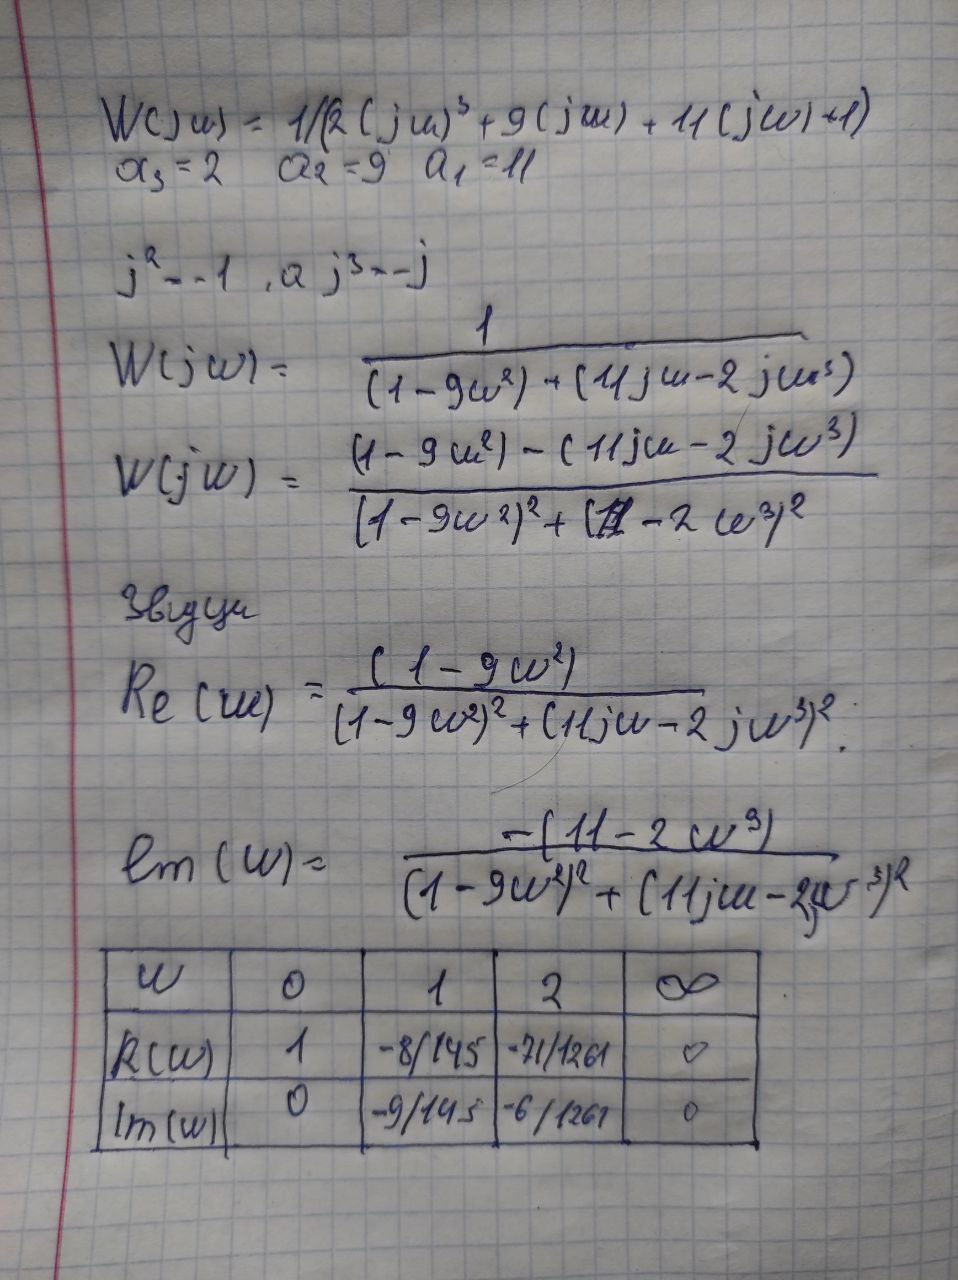 W(jω) = 1/(2(jω)³ + 9(jω) + 11(jω)+1)
a₃ = 2 a₂ = 9 a₁ = 11
j² = -1 , а j³ = -j
W(jω) = 1 / ((1 - 9ω²) + (11jω - 2jω³))
W(jω) = ((1 - 9ω²) - (11jω - 2jω³)) / ((1 - 9ω²)² + (11 - 2ω³)²)
Звідци
Re(ω) = (1 - 9ω²) / ((1 - 9ω²)² + (11jω - 2jω³)².
Im(ω) = -(11 - 2ω³) / ((1 - 9ω²)² + (11jω - 2jω³)²
ω 0 1 2 ∞
R(ω) 1 -8/145 -71/1261 0
Im(ω) 0 -9/145 -6/1261 0